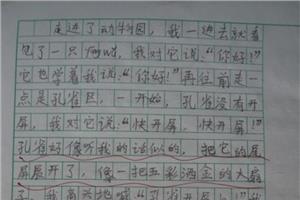 走进了动物园，我一进去就看
见了一只 我对它说："你好！"
它也学着我说："你好！"再往前走一
点是孔雀区，一开始，孔雀没有开
屏，我对它说："快开屏，快开屏！"
孔雀好像听我的话似的，把它的尾
屏展开了，像一把五彩洒金的大扇
子，我高兴地喊："孔雀开屏了！